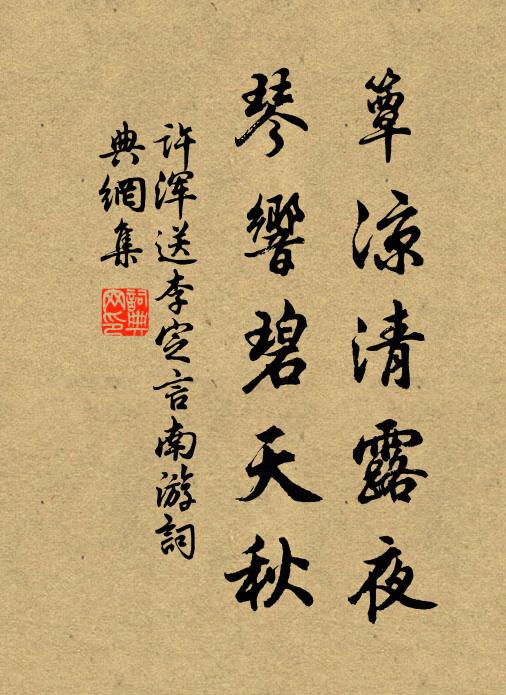 簟涼清露夜
琴響碧天秋
許渾送李定言南游詞
典網集
詞典網印